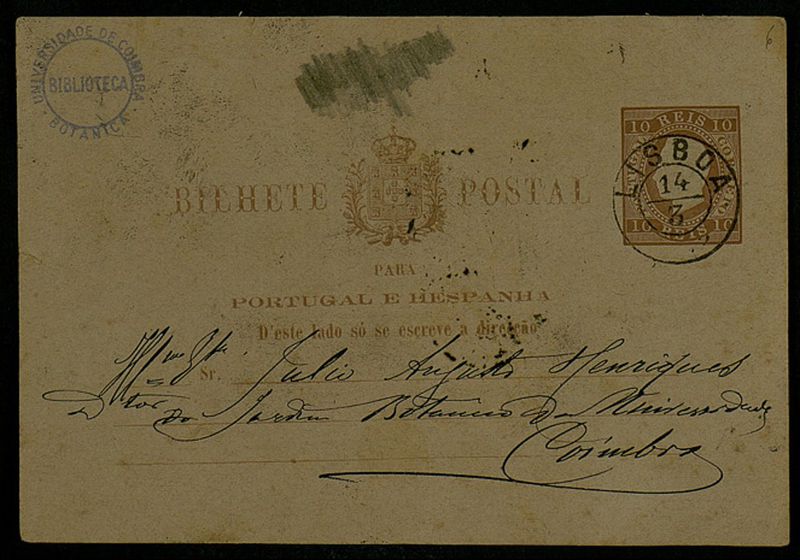 UNIVERSIDADE DE COIMBRA
BIBLIOTECA
BOTANICA
6
10 REIS 10
LISBOA
14
3
10 REIS 10
BILHETE POSTAL
PARA
PORTUGAL E HESPANHA
D'este lado só se escreve a direcção
Illmo Sr. Julio Augusto Henriques
Dtor do Jardim Botanico da Universidade
Coimbra